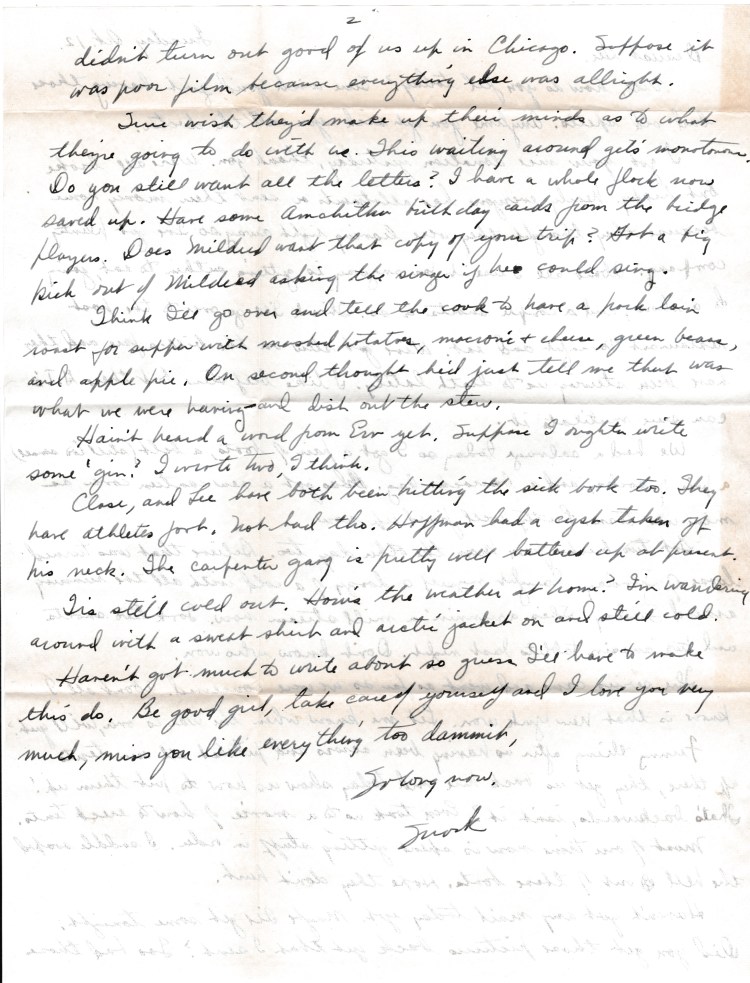 2
didn't turn out good of us up in Chicago. Suppose it
was poor film because everything else was allright.
I sure wish they'd make up their minds as to what
they're going to do with us. This waiting around gets monotonous.
Do you still want all the letters? I have a whole flock now
saved up. Have some birthday cards from the bridge
players. Does Mildred want that copy of your trip? Got a big
kick out of Mildred asking the singer if he could sing.
Think I'll go over and tell the cook to have a pork loin
roast for supper with mashed potatoes, macroni + cheese, green beans,
and apple pie. On second thought he'd just tell me that was
what we were having and dish out the stew.
Hain't heard a word from Erv yet. Suppose I oughta write
some 'gin? I wrote two, I think.
Close, and Lee have both been hitting the sick book too. They
have athletes foot. Not bad tho. Hoffman had a cyst taken off
his neck. The carpenter gang is pretty well battered up at present.
Tis still cold out. How's the weather at home? I'm wandering
around with a sweat shirt and arctic jacket on and still cold.
Haven't got much to write about so guess I'll have to make
this do. Be good girl, take care of yourself and I love you very
much, miss you like everything too dammit,
So long now.